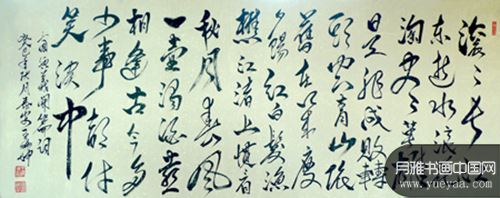 滚々长江
东逝水浪花
淘尽英雄
是非成败轉
頭空青山依
舊在几度
夕陽红白髮渔
樵江渚上惯看
秋月春风
一壶濁酒喜
相逢古今多
少事都付
笑谈中
三国演義開篇词
癸巳年秋月
月雅书画中国网
www.yueyaa.com